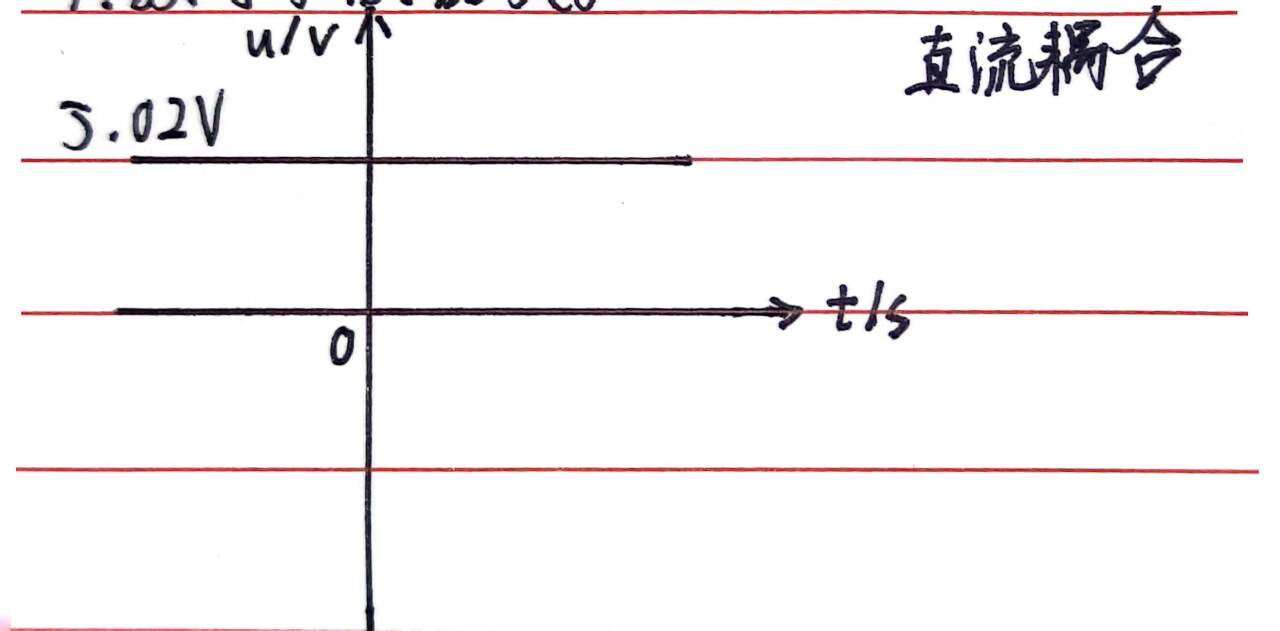 u/v
直流耦合
5.02V
t/s
0